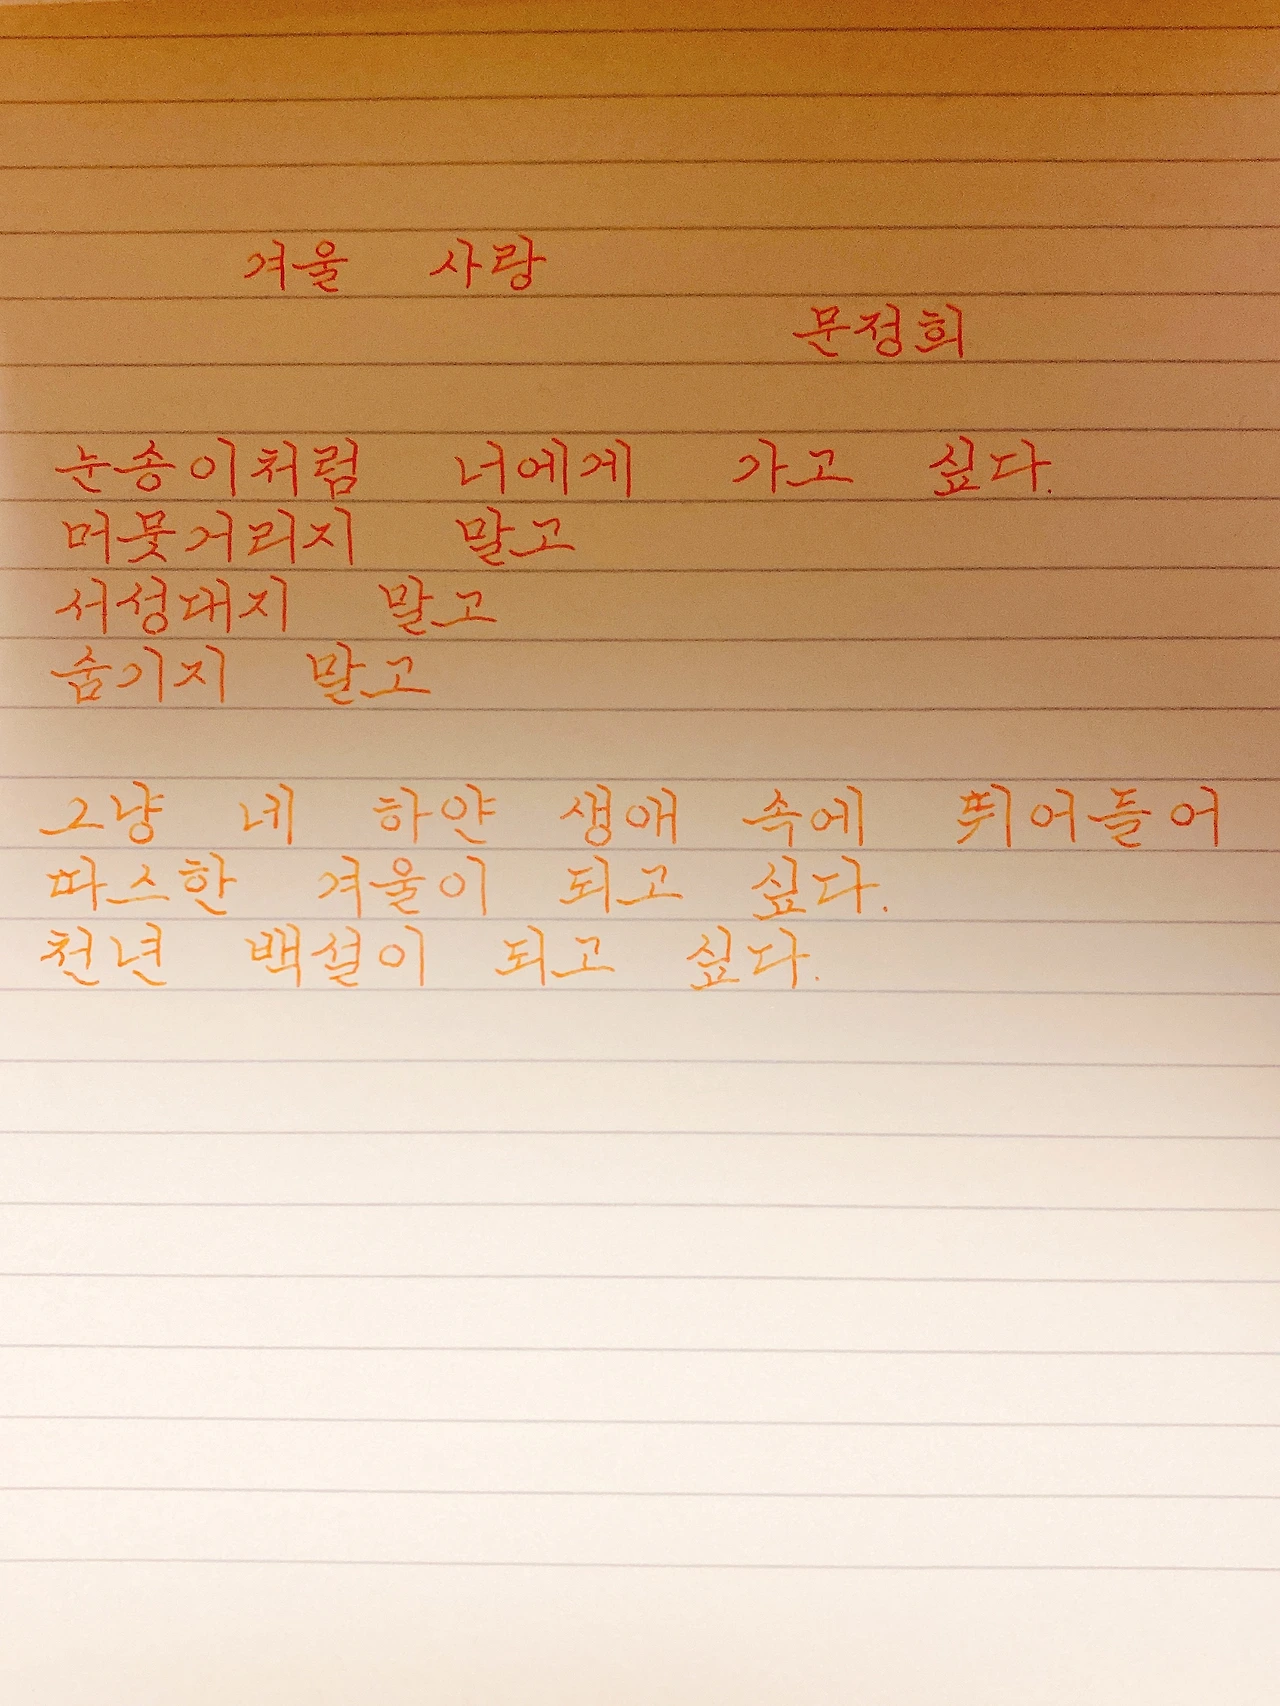 겨울 사랑
문정희
눈송이처럼 너에게 가고 싶다.
머뭇거리지 말고
서성대지 말고
숨기지 말고
그냥 네 하얀 생애 속에 뛰어들어
따스한 겨울이 되고 싶다.
천년 백설이 되고 싶다.